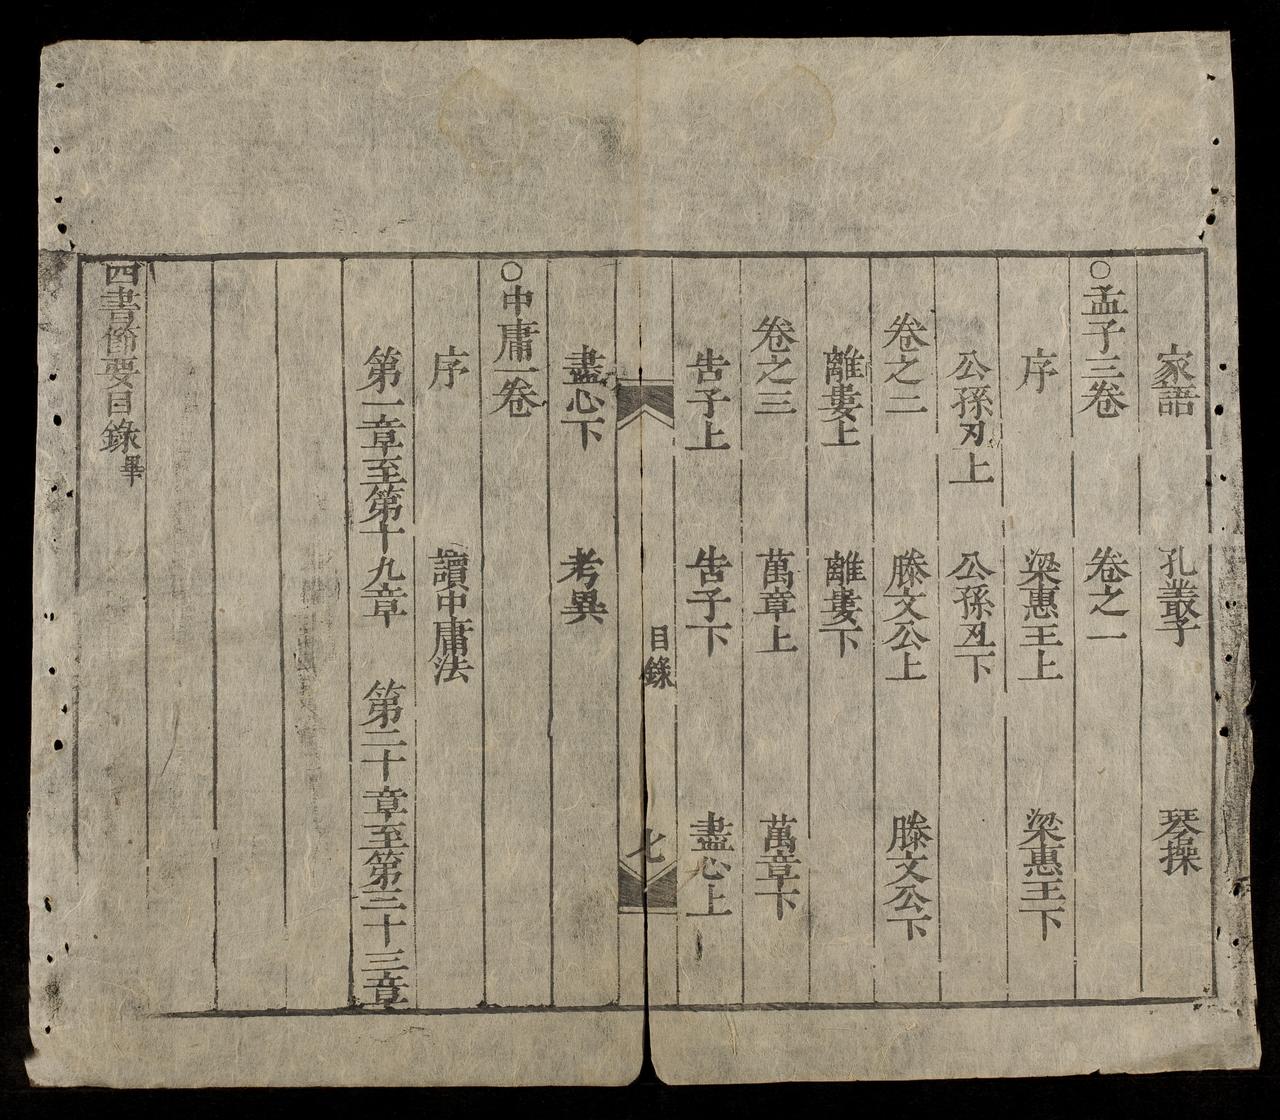 家語 孔叢子 琴操
○孟子三卷 卷之一
序 梁惠王上 梁惠王下
公孫丑上 公孫丑下
卷之二 滕文公上 滕文公下
離婁上 離婁下
卷之三 萬章上 萬章下
告子上 告子下 盡心上
目錄 七
盡心下 考異
○中庸一卷
序 讀中庸法
第一章至第十九章 第二十章至第三十三章
四書節要目錄畢